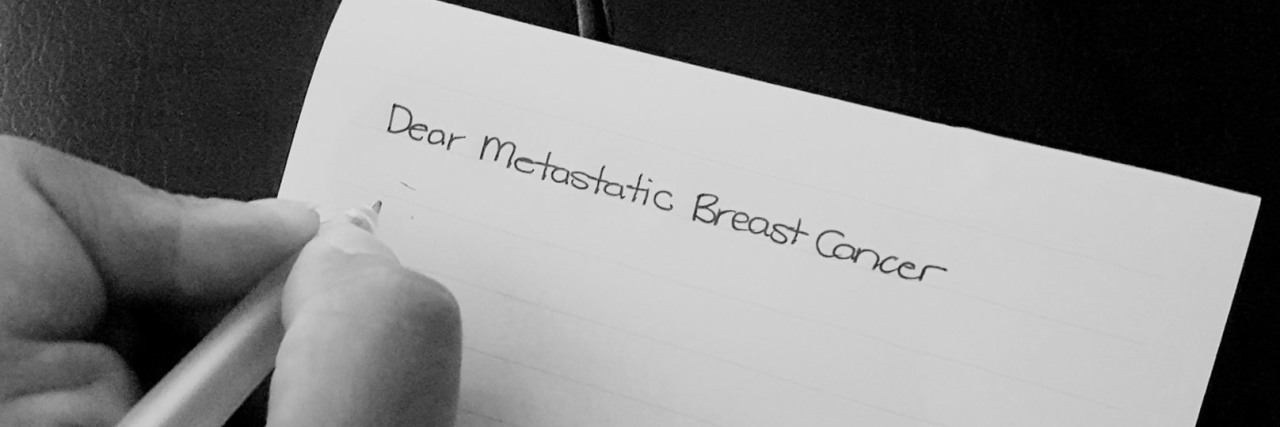 Dear Metastatic Breast Cancer